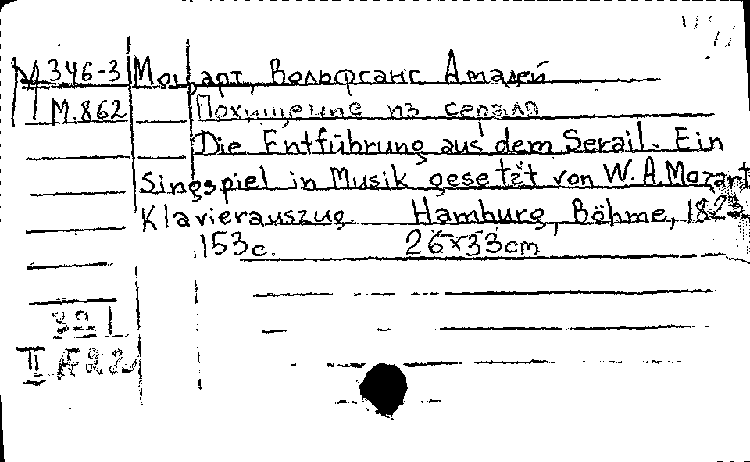 М 346-3 Моцарт, Вольфганг Амадей
М.862 Похищение из сераля
Die Entführung aus dem Serail. Ein
Singspiel in Musik gesetet von W. A. Mozart
Klavierauszug Hamburg, Böhme, 182
153с. 26x33cm
II